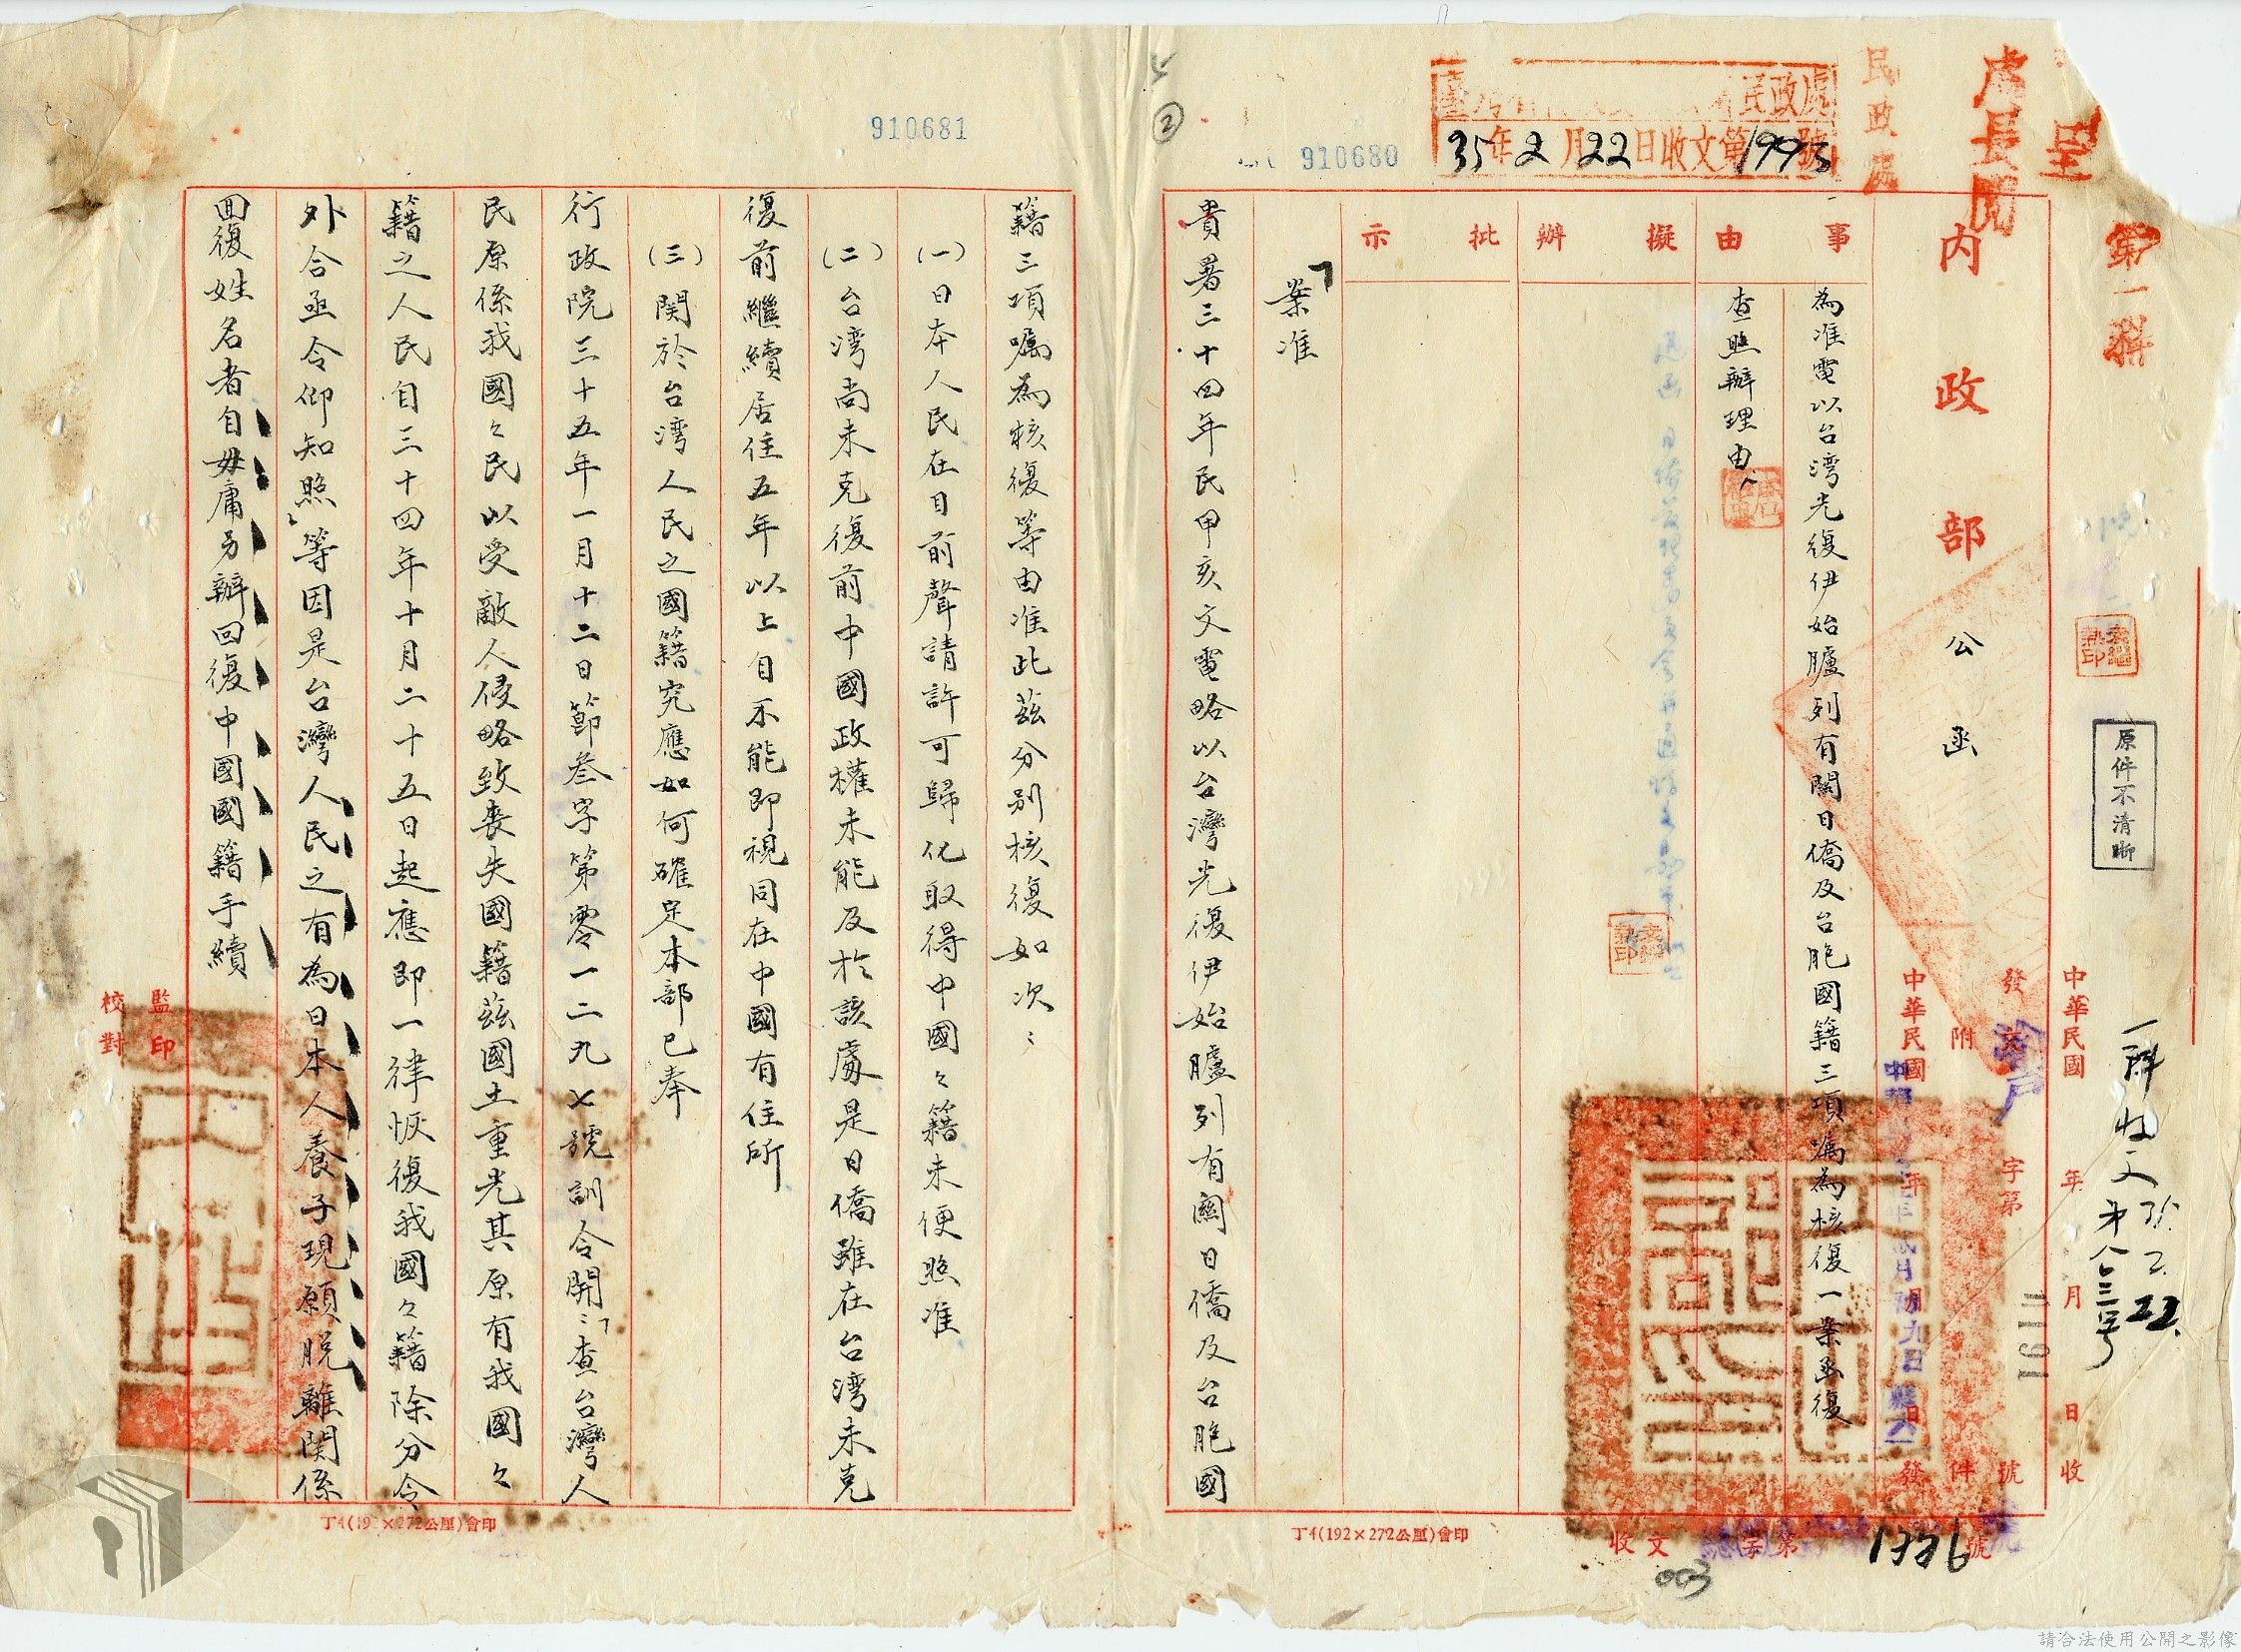 呈
處長閱
民政處
民政處
35年2月22日收文第1993號
910680
910681
②
第一科
原件不清晰
一科收文 35.2.22.
第八三號
中華民國 年 月 日收
發文渝戶字第 1191 號
附 件
中華民國 年 月 日發
內政部公函
事由
為准電以台灣光復伊始臚列有關日僑及台胞國籍三項囑為核復一案函復
查照辦理由
擬辦
批示
「案准
貴署三十四年民甲亥文電略以台灣光復伊始臚列有關日僑及台胞國
籍三項囑為核復等由准此茲分別核復如次：
(一)日本人民在目前聲請許可歸化取得中國々籍未便照准
(二)台湾尚未克復前中國政權未能及於該處是日僑雖在台湾未克
復前繼續居住五年以上自不能即視同在中國有住所
(三)関於台湾人民之國籍究應如何確定本部已奉
行政院三十五年一月十二日節叁字第零一二九七號訓令開：「查台灣人
民原係我國々民以受敵人侵略致喪失國籍茲國土重光其原有我國々
籍之人民自三十四年十月二十五日起應即一律恢復我國々籍除分令
外合亟令仰知照」等因是台灣人民之有為日本人養子現願脱離関係
回復姓名者自毋庸另辦回復中國國籍手續
監印
校對
收文 字第 1776 號
003
丁4(192×272公厘)會印
丁4(192×272公厘)會印
請合法使用公開之影像